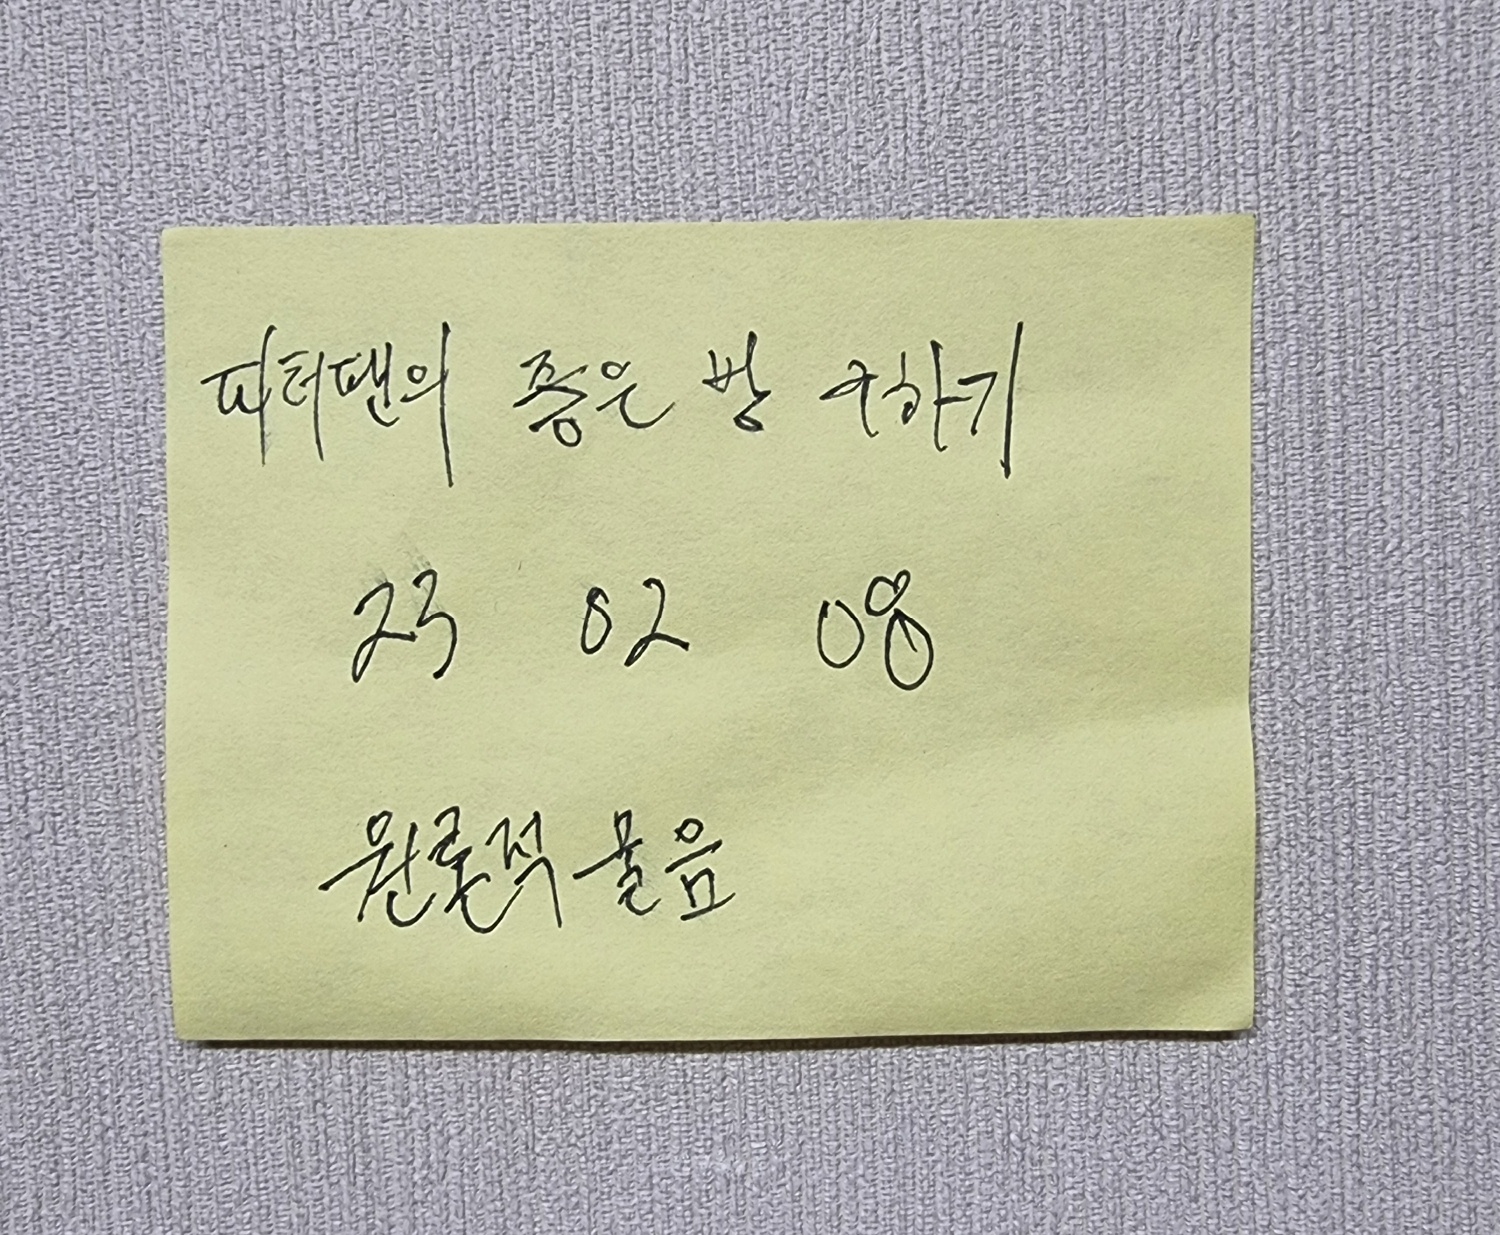 피터팬의 좋은 방 구하기
23 02 08
원룸적물음